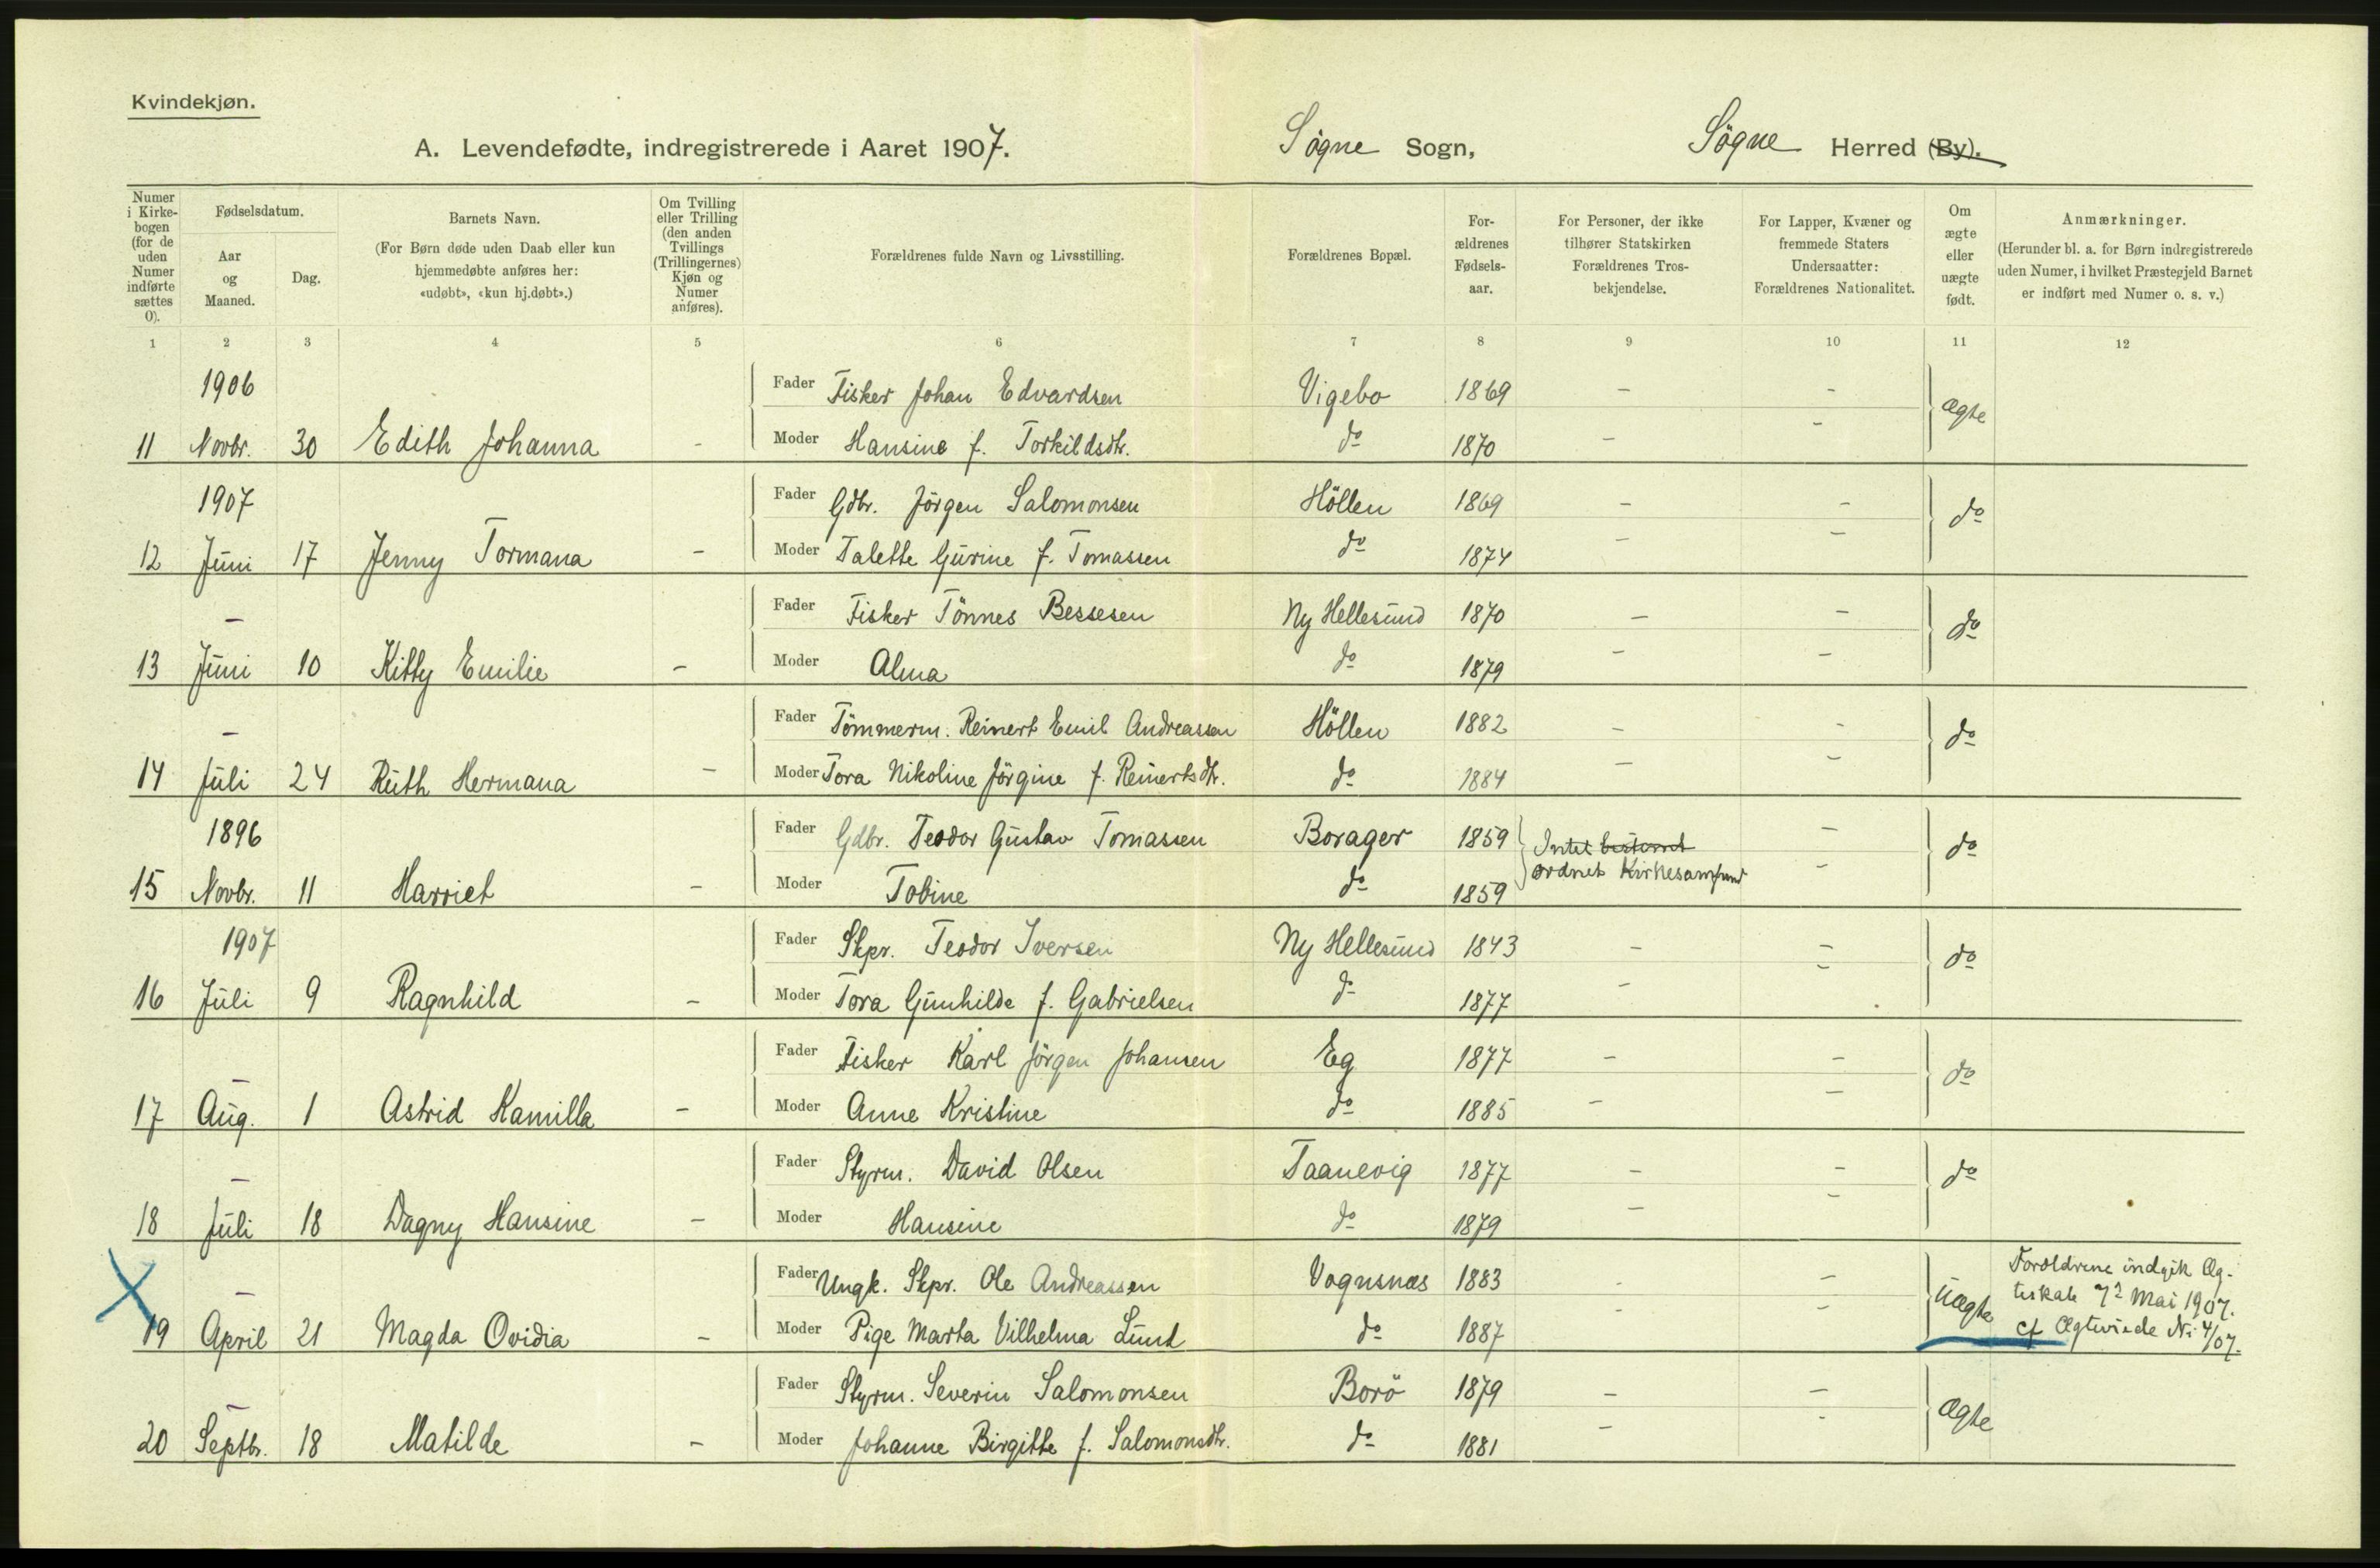 Kvindekjøn.
A. Levendefødte, indregistrerede i Aaret 1907.
Søgne Sogn,
Søgne Herred (By).
Numer i Kirkebogen (for de uden Numer indførte sættes 0).
Fødselsdatum.
Aar og Maaned.
Dag.
Barnets Navn.
(For Børn døde uden Daab eller kun hjemmedøbte anføres her: «udøbt», «kun hj.døbt».)
Om Tvilling eller Trilling (den anden Tvillings (Trillingernes) Kjøn og Numer anføres).
Forældrenes fulde Navn og Livsstilling.
Forældrenes Bopæl.
Forældrenes Fødselsaar.
For Personer, der ikke tilhører Statskirken Forældrenes Trosbekjendelse.
For Lapper, Kvæner og fremmede Staters Undersaatter: Forældrenes Nationalitet.
Om ægte eller uægte født.
Anmærkninger.
(Herunder bl. a. for Børn indregistrerede uden Numer, i hvilket Præstegjeld Barnet er indført med Numer o. s. v.)
1 2 3 4 5 6 7 8 9 10 11 12
1906 Fader Fisker Johan Edvardsen Vigebo 1869 - - Ægte
11 Novbr. 30 Edith Johanna - Moder Hansine f. Torkildsdtr. do 1870 - -
1907 Fader Gdbr. Jörgen Salomonsen Höllen 1869 - - do
12 Juni 17 Jenny Tormana - Moder Talette Gurine f. Tomassen do 1874 - -
- Fader Fisker Tönnes Bessesen Ny Hellesund 1870 - - do
13 Juni 10 Kitty Emilie - Moder Alma do 1879 - -
- Fader Tömmerm. Reinert Emil Andreassen Höllen 1882 - - do
14 Juli 24 Ruth Hermana - Moder Tora Nikoline Jörgine f. Reinertsdtr. do 1884 - -
1896 Fader Gdbr. Teodor Gustav Tomassen Borager 1859 Intet bestemt - do
15 Novbr. 11 Harriet - Moder Tobine do 1859 ordnet Kirkesamfund -
1907 Fader Skpr. Teodor Iversen Ny Hellesund 1843 - - do
16 Juli 9 Ragnhild - Moder Tora Gunhilde f. Gabrielsen do 1877 - -
- Fader Fisker Karl Jörgen Johansen Eg 1877 - - do
17 Aug. 1 Astrid Kamilla - Moder Anne Kristine do 1885 - -
- Fader Styrm. David Olsen Taanevig 1877 - - do
18 Juli 18 Dagny Hansine - Moder Hansine do 1879 - -
- Fader Ungk. Skpr. Ole Andreassen Vognsnæs 1883 - - Uægte Foreldrene indgik Æg-
teskab 7de Mai 1907.
X 19 April 21 Magda Ovidia - Moder Pige Marta Vilhelma Lund do 1887 - - cf Ægteviede No 4/07.
- Fader Styrm. Severin Salomonsen Borö 1879 - - Ægte
20 Septbr. 18 Matilde - Moder Johanne Birgitte f. Salomonsdtr. do 1881 - -